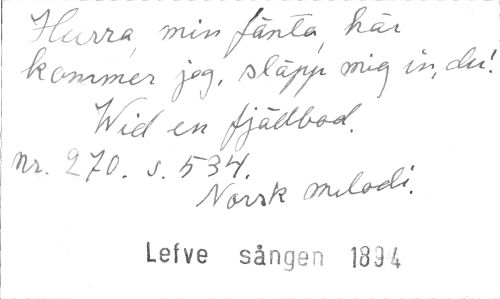 Hurra, min jänta, här
kommer jag, släpp mig in, du!
Wid en fjällbod.
nr. 270. s. 534.
Norsk melodi.
Lefve sången 1894